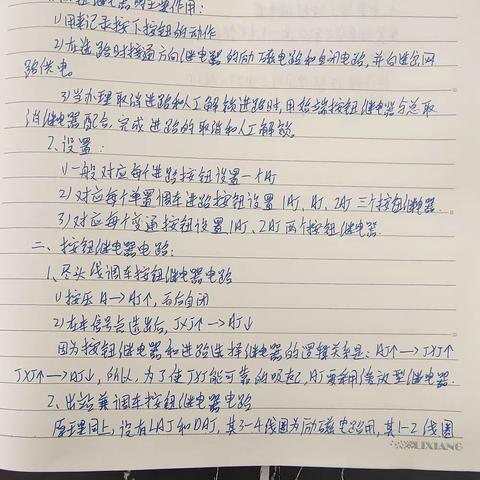 继电器的主要作用:
1)用来记录按下按钮的动作
2)在选路时接通方向继电器的励磁电路和自闭电路,并向选岔网
路供电。
3)当办理取消进路和人工解锁进路时,用始端按钮继电器与总取
消继电器配合,完成进路的取消和人工解锁。
2、设置:
1)一般对应每个进路按钮设置一个AJ
2)对应每个单置调车进路按钮设置1AJ、AJ、2AJ三个按钮继电器.
3)对应每个变通按钮设置1AJ、2AJ两个按钮继电器.
二、按钮继电器电路:
1、尽头线调车按钮继电器电路
1)按压A→AJ↑,而后自闭
2)在本信号点选出后,JXJ↑→AJ↓
因为按钮继电器和进路选择继电器的逻辑关系是:AJ↑→JXJ↑
JXJ↑→AJ↓,所以,为了使JXJ能可靠的吸起,AJ要采用缓放型继电器.
2、出站兼调车按钮继电器电路
原理同上,设有LAJ和DAJ,其3-4线圈为励磁电路用,其1-2线圈
LIXIANG